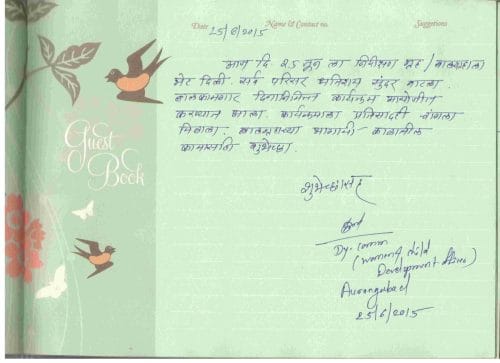 Date
Name & Contact no.
Suggestions
25/6/2015
आज दि २५ जून ला निरीक्षण गृह / बालगृहाला
भेट दिली. सर्व परिसर अतिशय सुंदर वाटला.
बालकामगार दिनानिमित्त कार्यक्रम आयोजीत
करण्यात आला. कार्यक्रमाला प्रतिसादही चांगला
मिळाला. बालगृहाच्या आगामी काळातील
कामासाठी शुभेच्छा.
शुभेच्छांसह
Dy. Comm
(Women & child
Development office)
Aurangabad
25/6/2015
Guest
Book